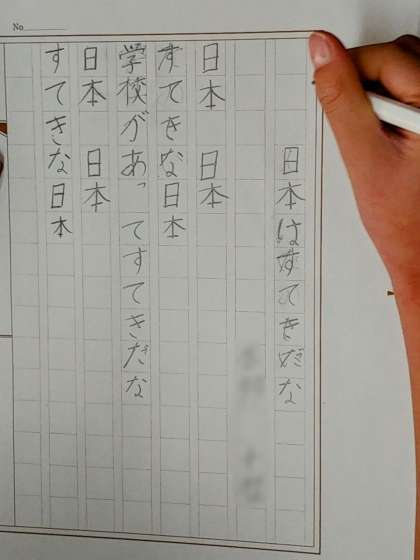 No
日本はすてきだな
日本 日本
すてきな日本
学校があってすてきだな
日本 日本
すてきな日本